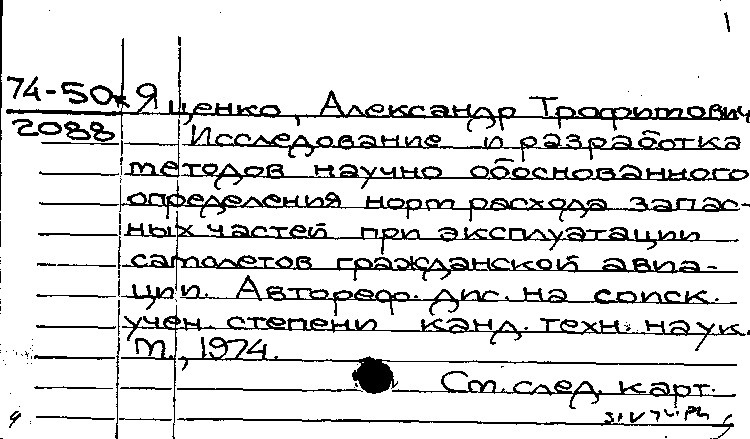 1
74-50к Яценко, Александр Трофимович
2088 Исследование и разработка
методов научно обоснованного
определения норм расхода запас-
ных частей при эксплуатации
самолетов гражданской авиа-
ции. Автореф. дис. на соиск.
учен. степени канд. техн. наук.
М., 1974.
См. след. карт.